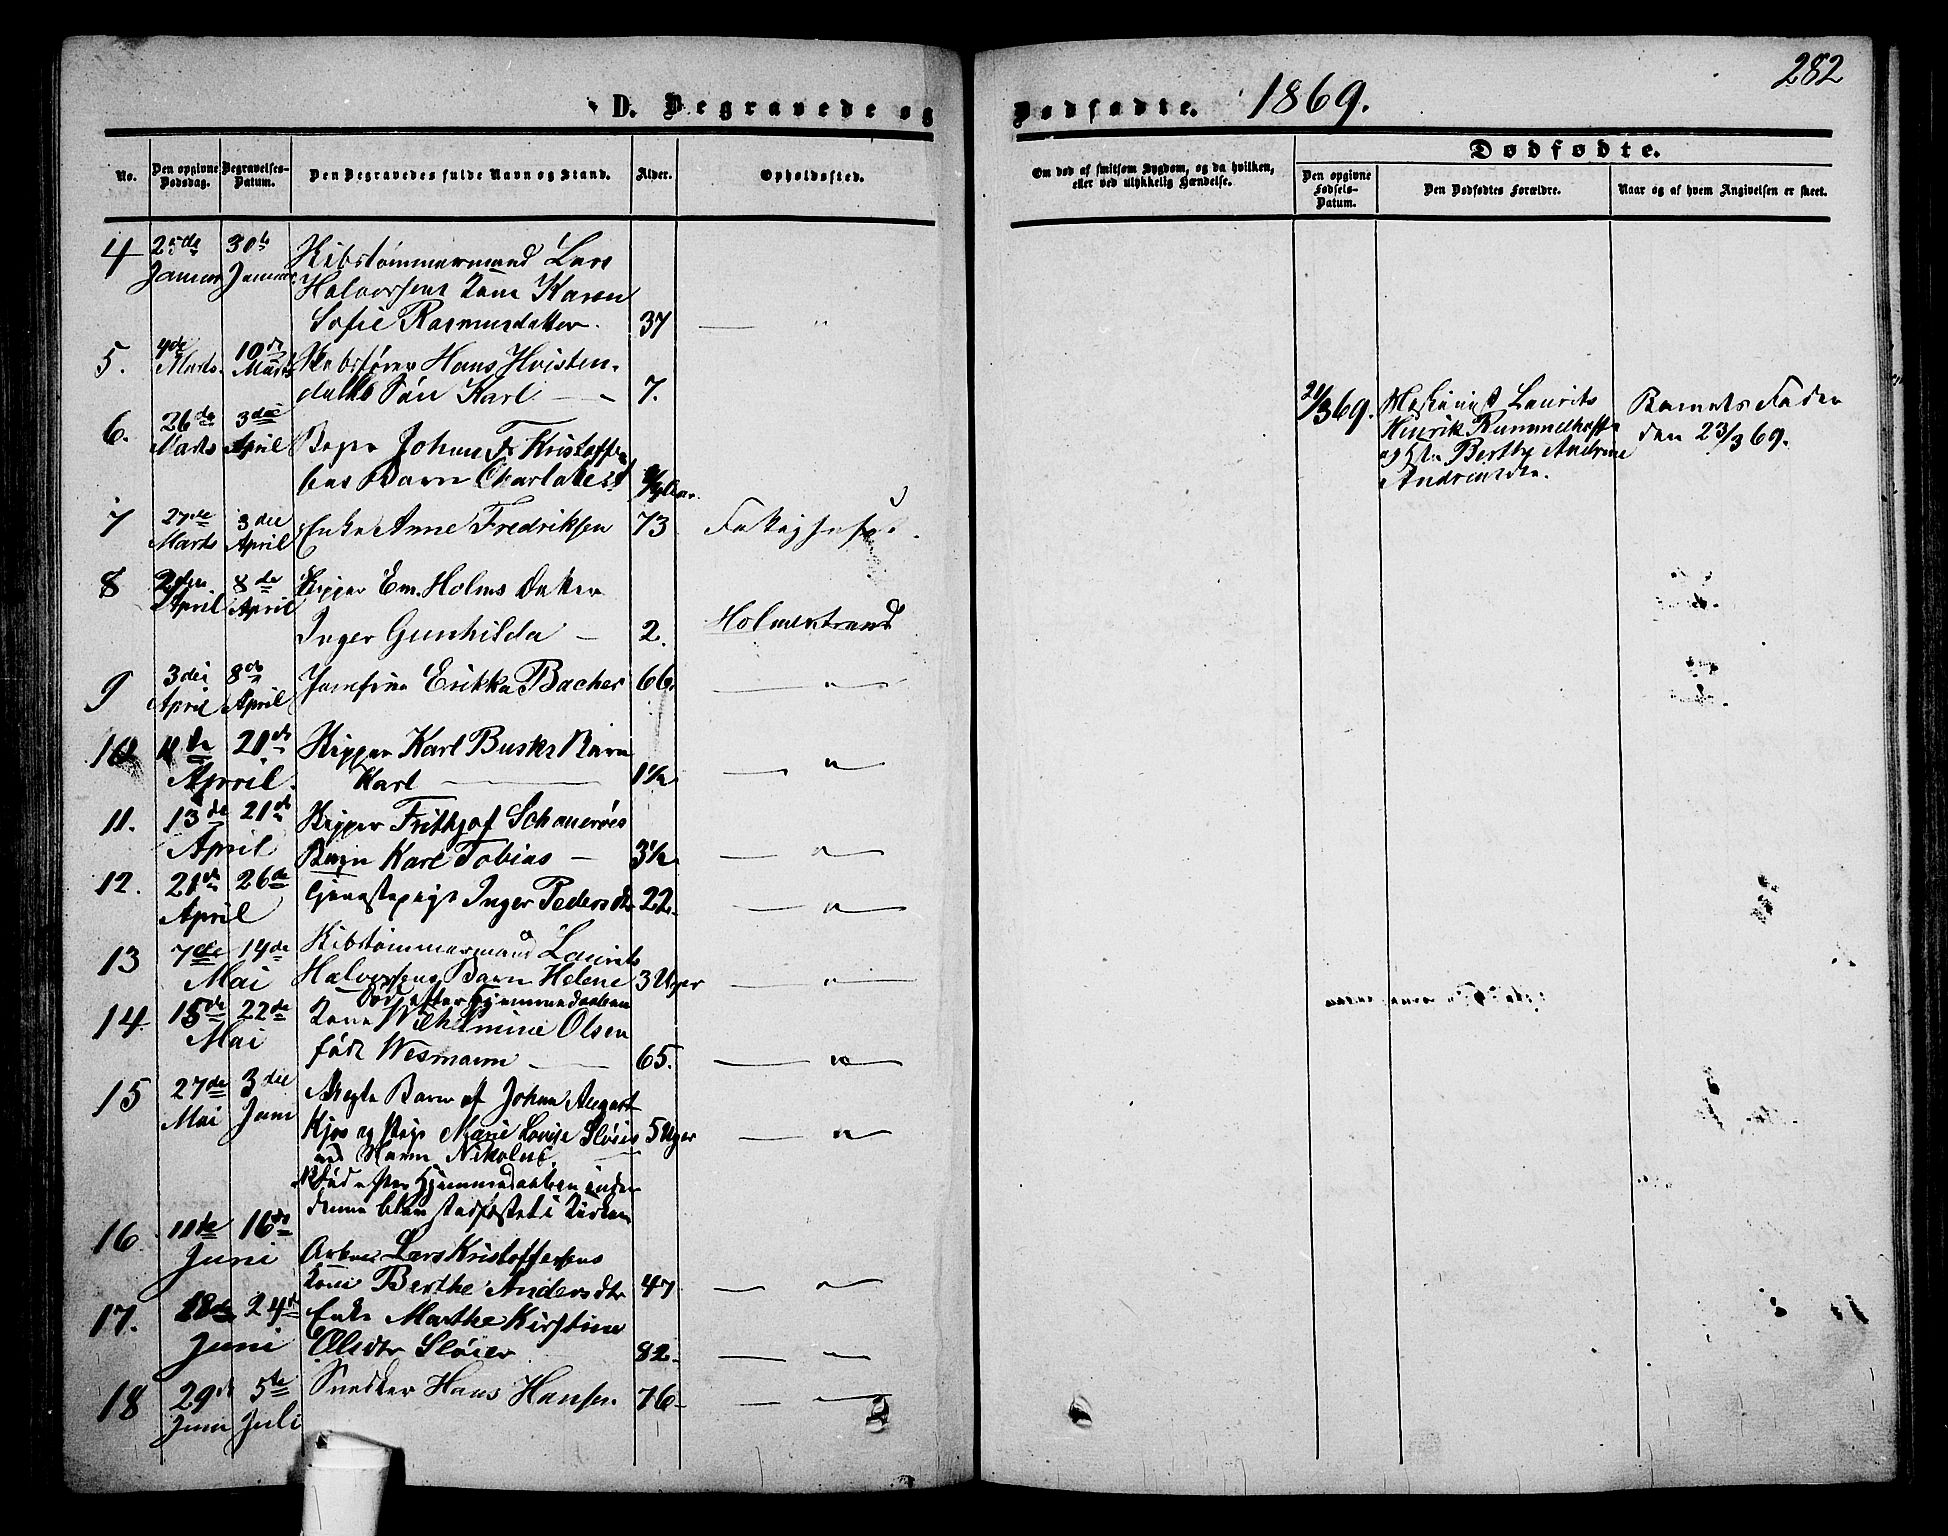 D. Begravede og
Dødfødte. 1869.
282
No.
Den opgivne Dødsdag.
Begravelses-Datum.
Den Begravedes fulde Navn og Stand.
Alder.
Opholdssted.
Om død af smitsom Sygdom, og da hvilken, eller ved ulykkelig Hændelse.
Dødfødte.
Den opgivne Fødsels-Datum.
Den Dødfødtes Forældre.
Naar og af hvem Angivelsen er skeet.
4 25de 30te Skibstømmermand Lars
Januar Januar Halvorsens Kone Karen
Sofie Rasmusdatter. 37 — "
5. 4de 10de Skibsfører Hans Hvisten-
Marts. Marts dahls Søn Karl — 7.
6. 26de 3die
Marts April Johan F. Kristoffer
sens Barn
7 27de 3die Enke Anne Fredriksen 73
Marts April
8 2den 8de Skipper Em. Holms Datter
April April
Inger Gunhilda — 2. Holmestrand
9 3die 8de Josefine Erikka Bacher 66 — " —
April April
10 11de 21de Skipper Karl Busks Barn
April. Karl — 1½ — " —
11. 13de 21de Skipper Frithjof
April Barn Karl Tobias — 3½ — " —
12. 21de 26de Tjenestepige Inger Pedersdtr 22 — " —
April
13 7de 14de Skibstømmermand Laurits
Mai Halvorsens Barn Helene 3 Uger — " —
Død efter Hjemmedaaben
14 15de 22de Kone Wilhelmine Olsen
Mai født Wesmann — 65. — " —
15 27de 3die Uægte Barn af Johan August
Mai Juni Kjøs og Pige Marie Lovise Sløier 5 Uger — " —
ved Navn Nikolus.
Død efter Hjemmedaaben inden
denne blev stadfæstet i Kirken
16 11de 16de
Juni Arbmd Lars Kristoffersens
Kone Berthe Andersdtr 47 — " —
17. 18de 24de Enke Marthe Kirstine
Juni Olsdtr Sløier 82 — " —
18 29de 5te Snedker Hans Hansen 76 — " —
Juni Juli
21/3 69. Maskinist Laurits
Henrik Rummelhoff
og Hst. Berthe Andrine
Andreasen.
Barnets Fader
den 23/3 69.